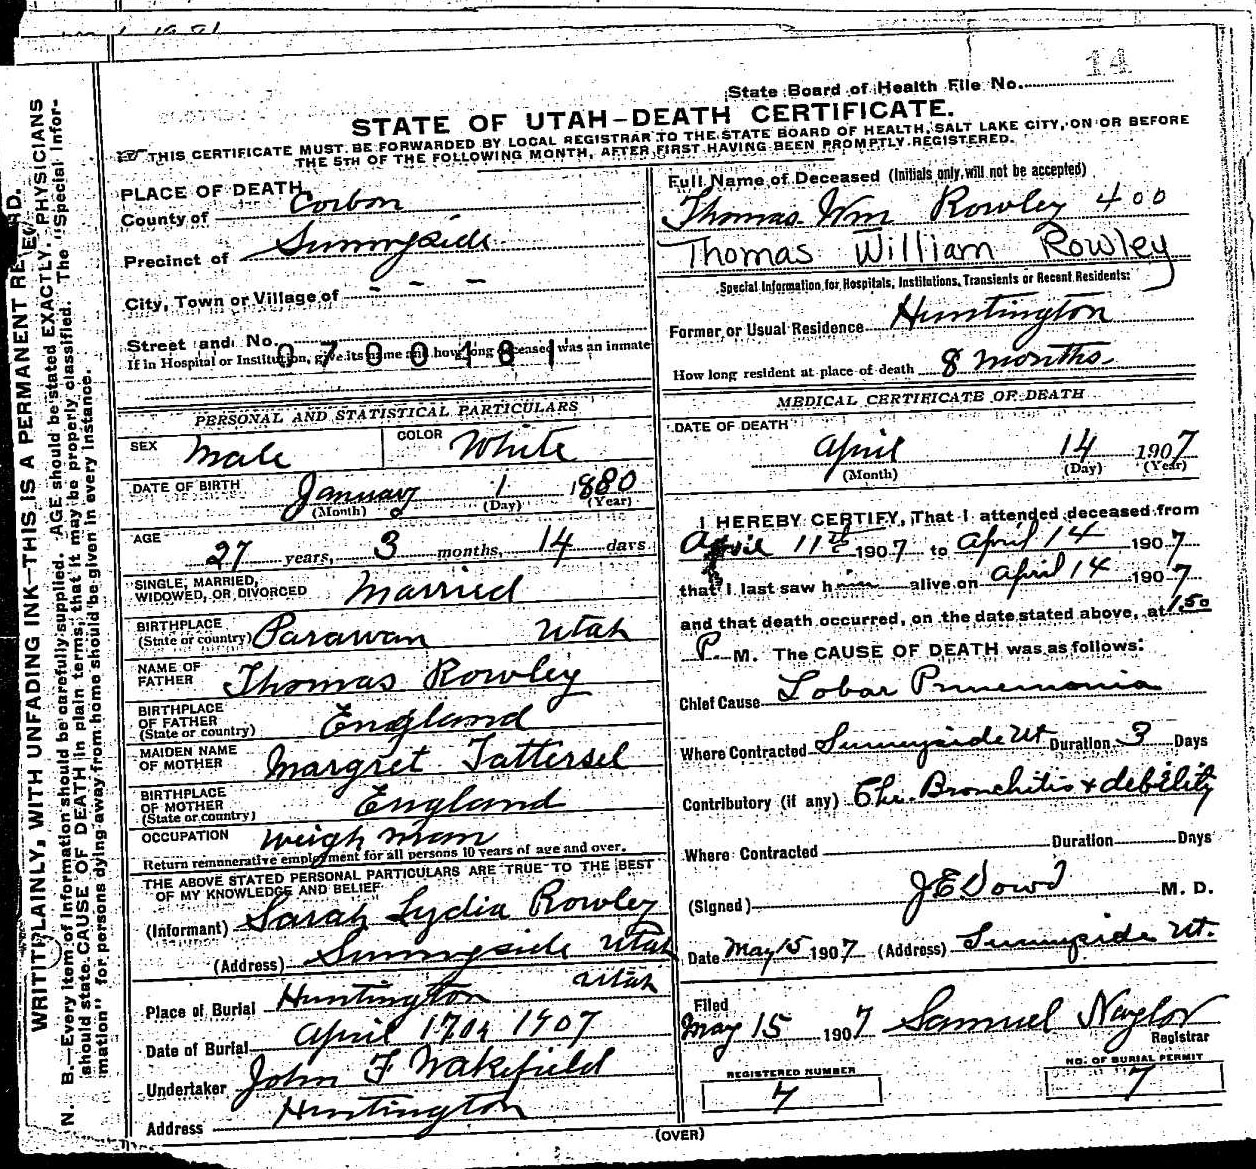 14
State Board of Health File No.
STATE OF UTAH-DEATH CERTIFICATE.
THIS CERTIFICATE MUST BE FORWARDED BY LOCAL REGISTRAR TO THE STATE BOARD OF HEALTH, SALT LAKE CITY, ON OR BEFORE
THE 5TH OF THE FOLLOWING MONTH, AFTER FIRST HAVING BEEN PROMPTLY REGISTERED.
WRITE PLAINLY, WITH UNFADING INK—THIS IS A PERMANENT RECORD.
N. B.—Every item of Information should be carefully supplied. AGE should be stated EXACTLY. PHYSICIANS
should state CAUSE OF DEATH in plain terms, that it may be properly classified. The "Special Infor-
mation" for persons dying away from home should be given in every instance.
PLACE OF DEATH,
County of Corbon
Precinct of Sunnyside
City, Town or Village of - - -
Street and No.
If in Hospital or Institution, give its name and how long deceased was an inmate
0700481
PERSONAL AND STATISTICAL PARTICULARS
SEX Male COLOR White
DATE OF BIRTH January 1 1880
(Month) (Day) (Year)
AGE 27 years, 3 months, 14 days
SINGLE, MARRIED,
WIDOWED, OR DIVORCED Married
BIRTHPLACE
(State or country) Parawan Utah
NAME OF
FATHER Thomas Rowley
BIRTHPLACE
OF FATHER
(State or country) England
MAIDEN NAME
OF MOTHER Margret Tattersel
BIRTHPLACE
OF MOTHER
(State or country) England
OCCUPATION weigh man
Return remunerative employment for all persons 10 years of age and over.
THE ABOVE STATED PERSONAL PARTICULARS ARE TRUE TO THE BEST
OF MY KNOWLEDGE AND BELIEF
(Informant) Sarah Lydia Rowley
(Address) Sunnyside Utah
Utah
Place of Burial Huntington
Date of Burial April 17 1907
Undertaker John F Wakefield
Address Huntington
Full Name of Deceased (Initials only will not be accepted)
Thomas Wm Rowley 400
Thomas William Rowley
Special Information for Hospitals, Institutions, Transients or Recent Residents:
Former or Usual Residence Huntington
How long resident at place of death 8 months
MEDICAL CERTIFICATE OF DEATH
DATE OF DEATH
April 14 1907
(Month) (Day) (Year)
I HEREBY CERTIFY, That I attended deceased from
April 11th 1907 to April 14 1907
that I last saw him alive on April 14 1907
and that death occurred, on the date stated above, at 1.50
P. M. The CAUSE OF DEATH was as follows:
Chief Cause Lobar Pnuemonia
Where Contracted Sunnyside Ut Duration 3 Days
Contributory (if any) Chr. Bronchitis & debility
Where Contracted Duration Days
(Signed) J E Dowd M. D.
Date May 15 1907 (Address) Sunnyside Ut.
Filed
May 15 1907 Samuel Naylor
Registrar
REGISTERED NUMBER
7
NO. OF BURIAL PERMIT
7
(OVER)